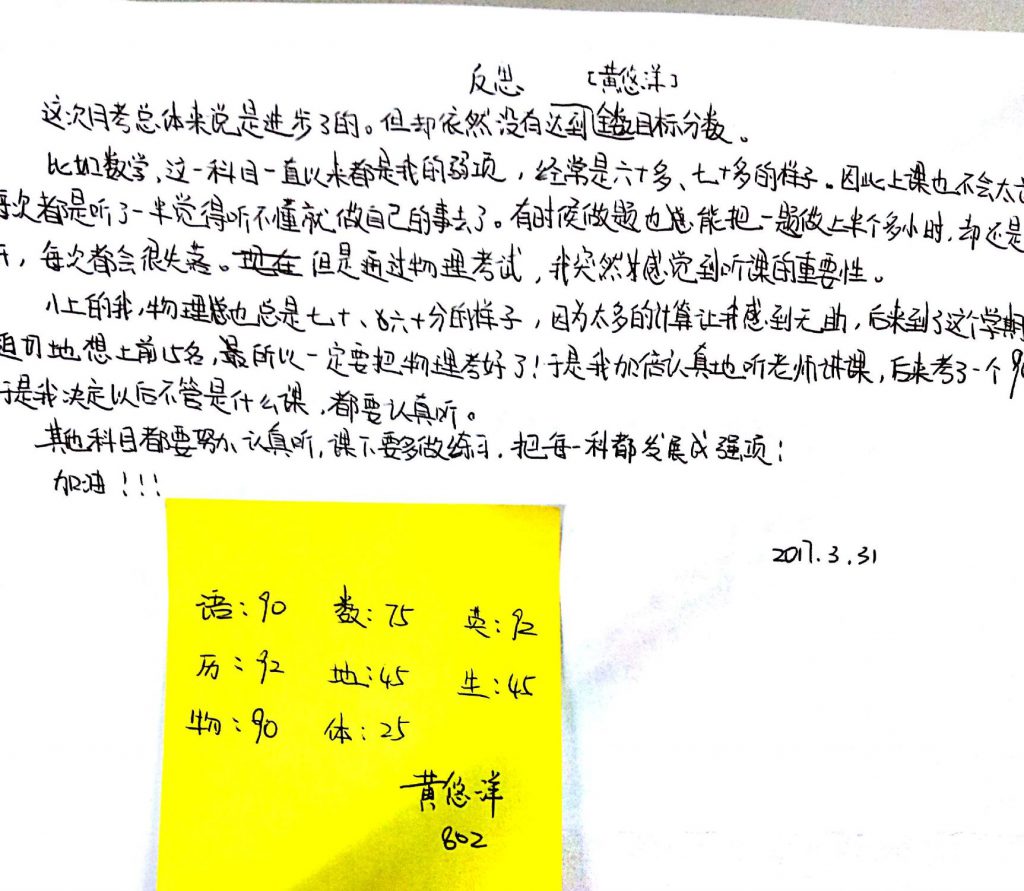 反思 [黄悠洋]
这次月考总体来说是进步了的。但却依然没有达到目标分数。
比如数学,这一科目一直以来都是我的弱项,经常是六十多、七十多的样子。因此上课也不会太
每次都是听了一半觉得听不懂就做自己的事去了。有时候做题也总能把一题做上半个多小时,却还是
,每次都会很失落。但是通过物理考试,我突然才感觉到听课的重要性。
八上的我,物理也总是七十、六十分的样子,因为太多的计算让我感到无助,后来到了这个学期
迫切地想上前15名,所以一定要把物理考好了!于是我加倍认真地听老师讲课,后来考了一个90
于是我决定以后不管是什么课,都要认真听。
其他科目都要努力认真听,课下要多做练习,把每一科都发展成强项!
加油!!!
2017.3.31
语:90 数:75 英:92
历:92 地:45 生:45
物:90 体:25
黄悠洋
802